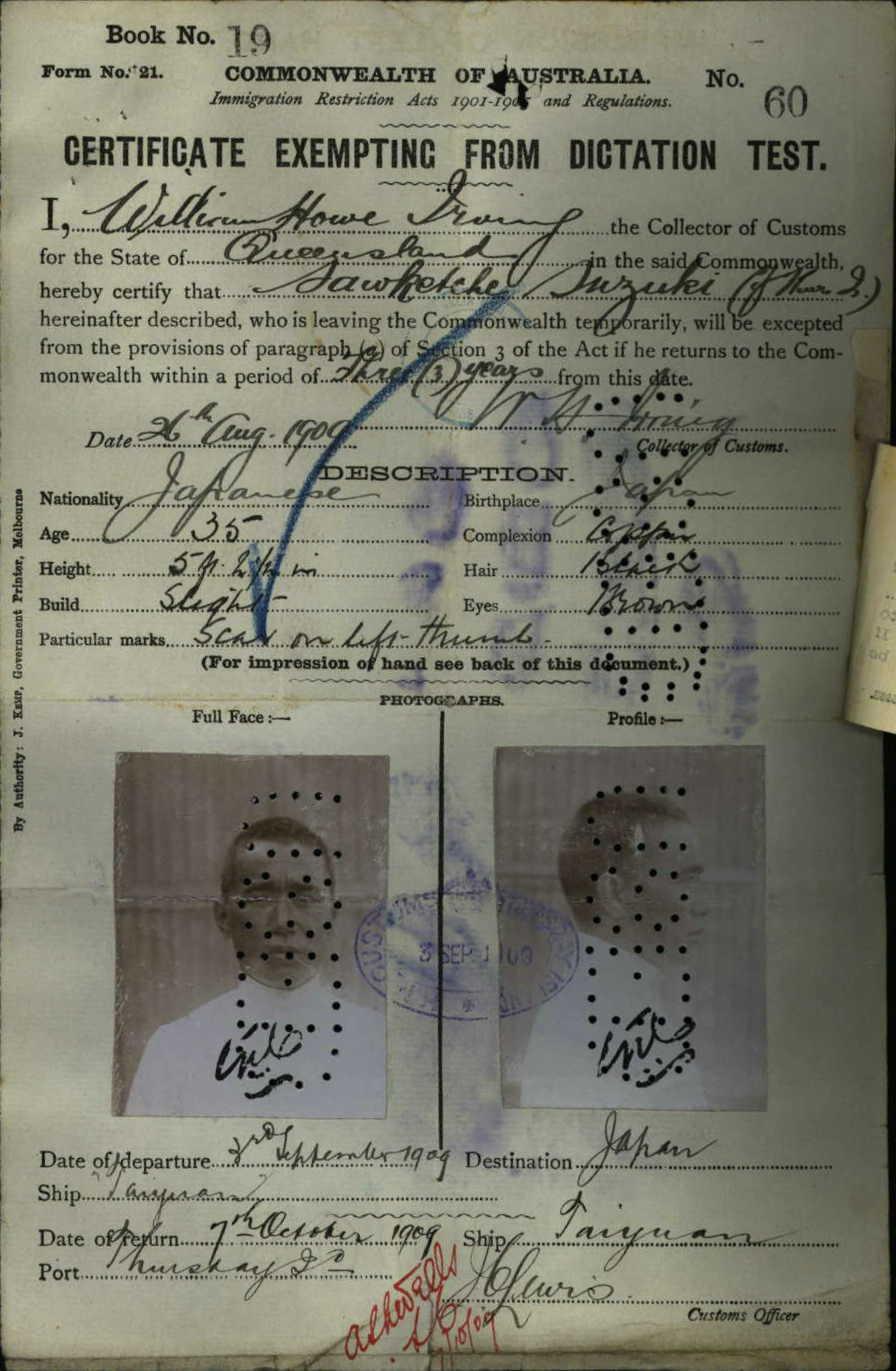 Book No. 19
Form No. 21. COMMONWEALTH OF AUSTRALIA. No. 60
Immigration Restriction Acts 1901-1905 and Regulations.
CERTIFICATE EXEMPTING FROM DICTATION TEST.
I, William Howe Irving the Collector of Customs
for the State of Queensland in the said Commonwealth,
hereby certify that Suzuki (of Thur. I.)
hereinafter described, who is leaving the Commonwealth temporarily, will be excepted
from the provisions of paragraph (a) of Section 3 of the Act if he returns to the Com-
monwealth within a period of Three (3) years from this date.
W H Irving
Date 26th Aug. 1909 Collector of Customs.
DESCRIPTION.
Nationality Japanese Birthplace Japan
Age 35 Complexion Copper
Height 5 ft 2 1/2 in Hair Black
Build Slight Eyes Brown
Particular marks Scar on left thumb
(For impression of hand see back of this document.)
PHOTOGRAPHS.
Full Face :— Profile :—
3 SEP 1909
Date of departure 3rd September 1909 Destination Japan
Ship Taiyuan
Date of return 7th October 1909 Ship Taiyuan
Port Thursday Id
Customs Officer
By Authority: J. Kemp, Government Printer, Melbourne